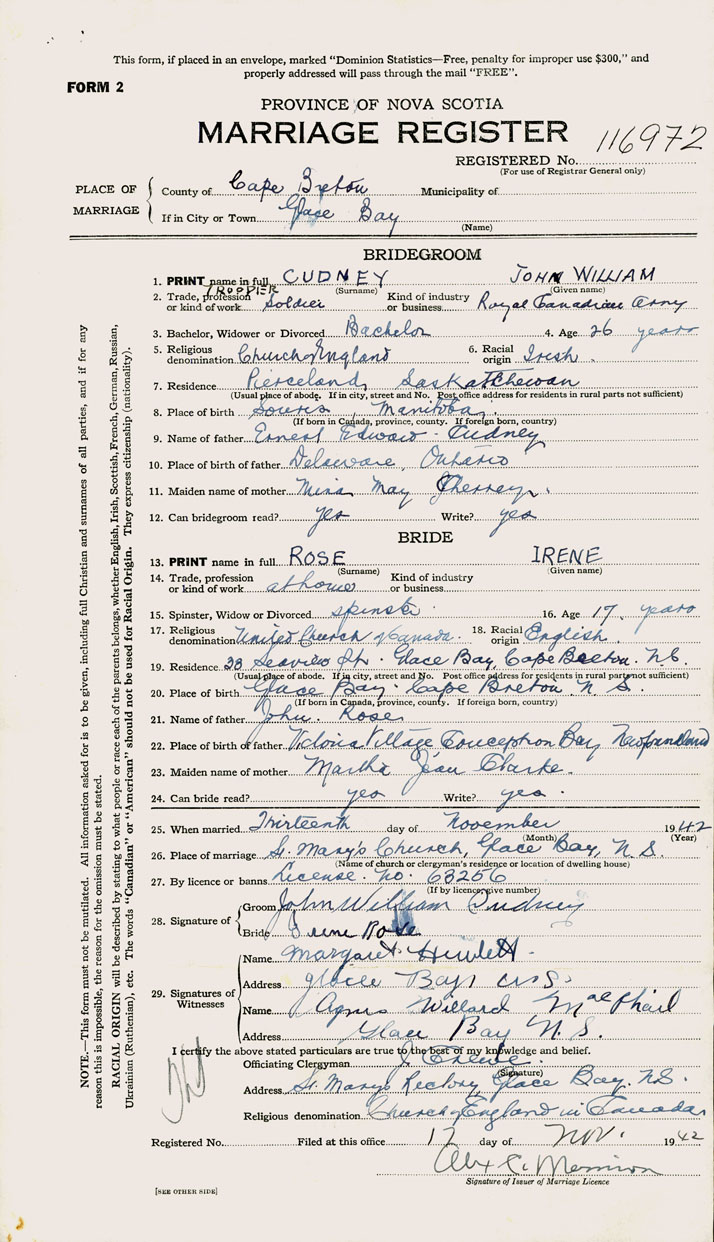 This form, if placed in an envelope, marked “Dominion Statistics—Free, penalty for improper use $300,” and
properly addressed will pass through the mail “FREE”.
FORM 2
PROVINCE OF NOVA SCOTIA
MARRIAGE REGISTER
116972
REGISTERED No.
(For use of Registrar General only)
PLACE OF MARRIAGE
County of Cape Breton Municipality of
If in City or Town Glace Bay
(Name)
BRIDEGROOM
1. PRINT name in full CUDNEY JOHN WILLIAM
(Surname) (Given name)
TROOPER
2. Trade, profession or kind of work Soldier Kind of industry or business Royal Canadian Army
3. Bachelor, Widower or Divorced Bachelor 4. Age 26 years
5. Religious denomination Church of England 6. Racial origin Irish.
7. Residence Pierceland, Saskatchewan
(Usual place of abode. If in city, street and No. Post office address for residents in rural parts not sufficient)
8. Place of birth Souris, Manitoba.
(If born in Canada, province, county. If foreign born, country)
9. Name of father Ernest Edward Cudney
10. Place of birth of father Delaware, Ontario
11. Maiden name of mother May
12. Can bridegroom read? yes Write? yes
BRIDE
13. PRINT name in full ROSE IRENE
(Surname) (Given name)
14. Trade, profession or kind of work at home Kind of industry or business
15. Spinster, Widow or Divorced spinster 16. Age 17. years
17. Religious denomination United Church of Canada. 18. Racial origin English.
19. Residence 23 Seaview St. Glace Bay, Cape Breton. N.S.
(Usual place of abode. If in city, street and No. Post office address for residents in rural parts not sufficient)
20. Place of birth Glace Bay. Cape Breton N.S.
(If born in Canada, province, county. If foreign born, country)
21. Name of father John Rose
22. Place of birth of father Victoria Village Conception Bay Newfoundland
23. Maiden name of mother Martha Jean Clarke.
24. Can bride read? yes Write? yes.
25. When married Thirteenth day of November 1942
(Month) (Year)
26. Place of marriage St. Mary's Church, Glace Bay, N.S.
(Name of church or clergyman's residence or location of dwelling house)
27. By licence or banns License. No. 63256
(If by licence, give number)
28. Signature of Groom John William Cudney
Bride Irene Rose
29. Signatures of Witnesses
Name Margaret Hewlett.
Address Glace Bay N.S.
Name Agnes Willard MacPhail
Address Glace Bay N.S.
I certify the above stated particulars are true to the best of my knowledge and belief.
Officiating Clergyman
(Signature)
Address St. Mary's Rectory, Glace Bay. N.S.
Religious denomination Church of England in Canada
Registered No. Filed at this office 12 day of Nov. 1942
Signature of Issuer of Marriage Licence
[SEE OTHER SIDE]
NOTE.—This form must not be mutilated. All information asked for is to be given, including full Christian and surnames of all parties, and if for any
reason this is impossible, the reason for the omission must be stated.
RACIAL ORIGIN will be described by stating to what people or race each of the parents belongs, whether English, Irish, Scottish, French, German, Russian,
Ukrainian (Ruthenian), etc. The words “Canadian” or “American” should not be used for Racial Origin. They express citizenship (nationality).